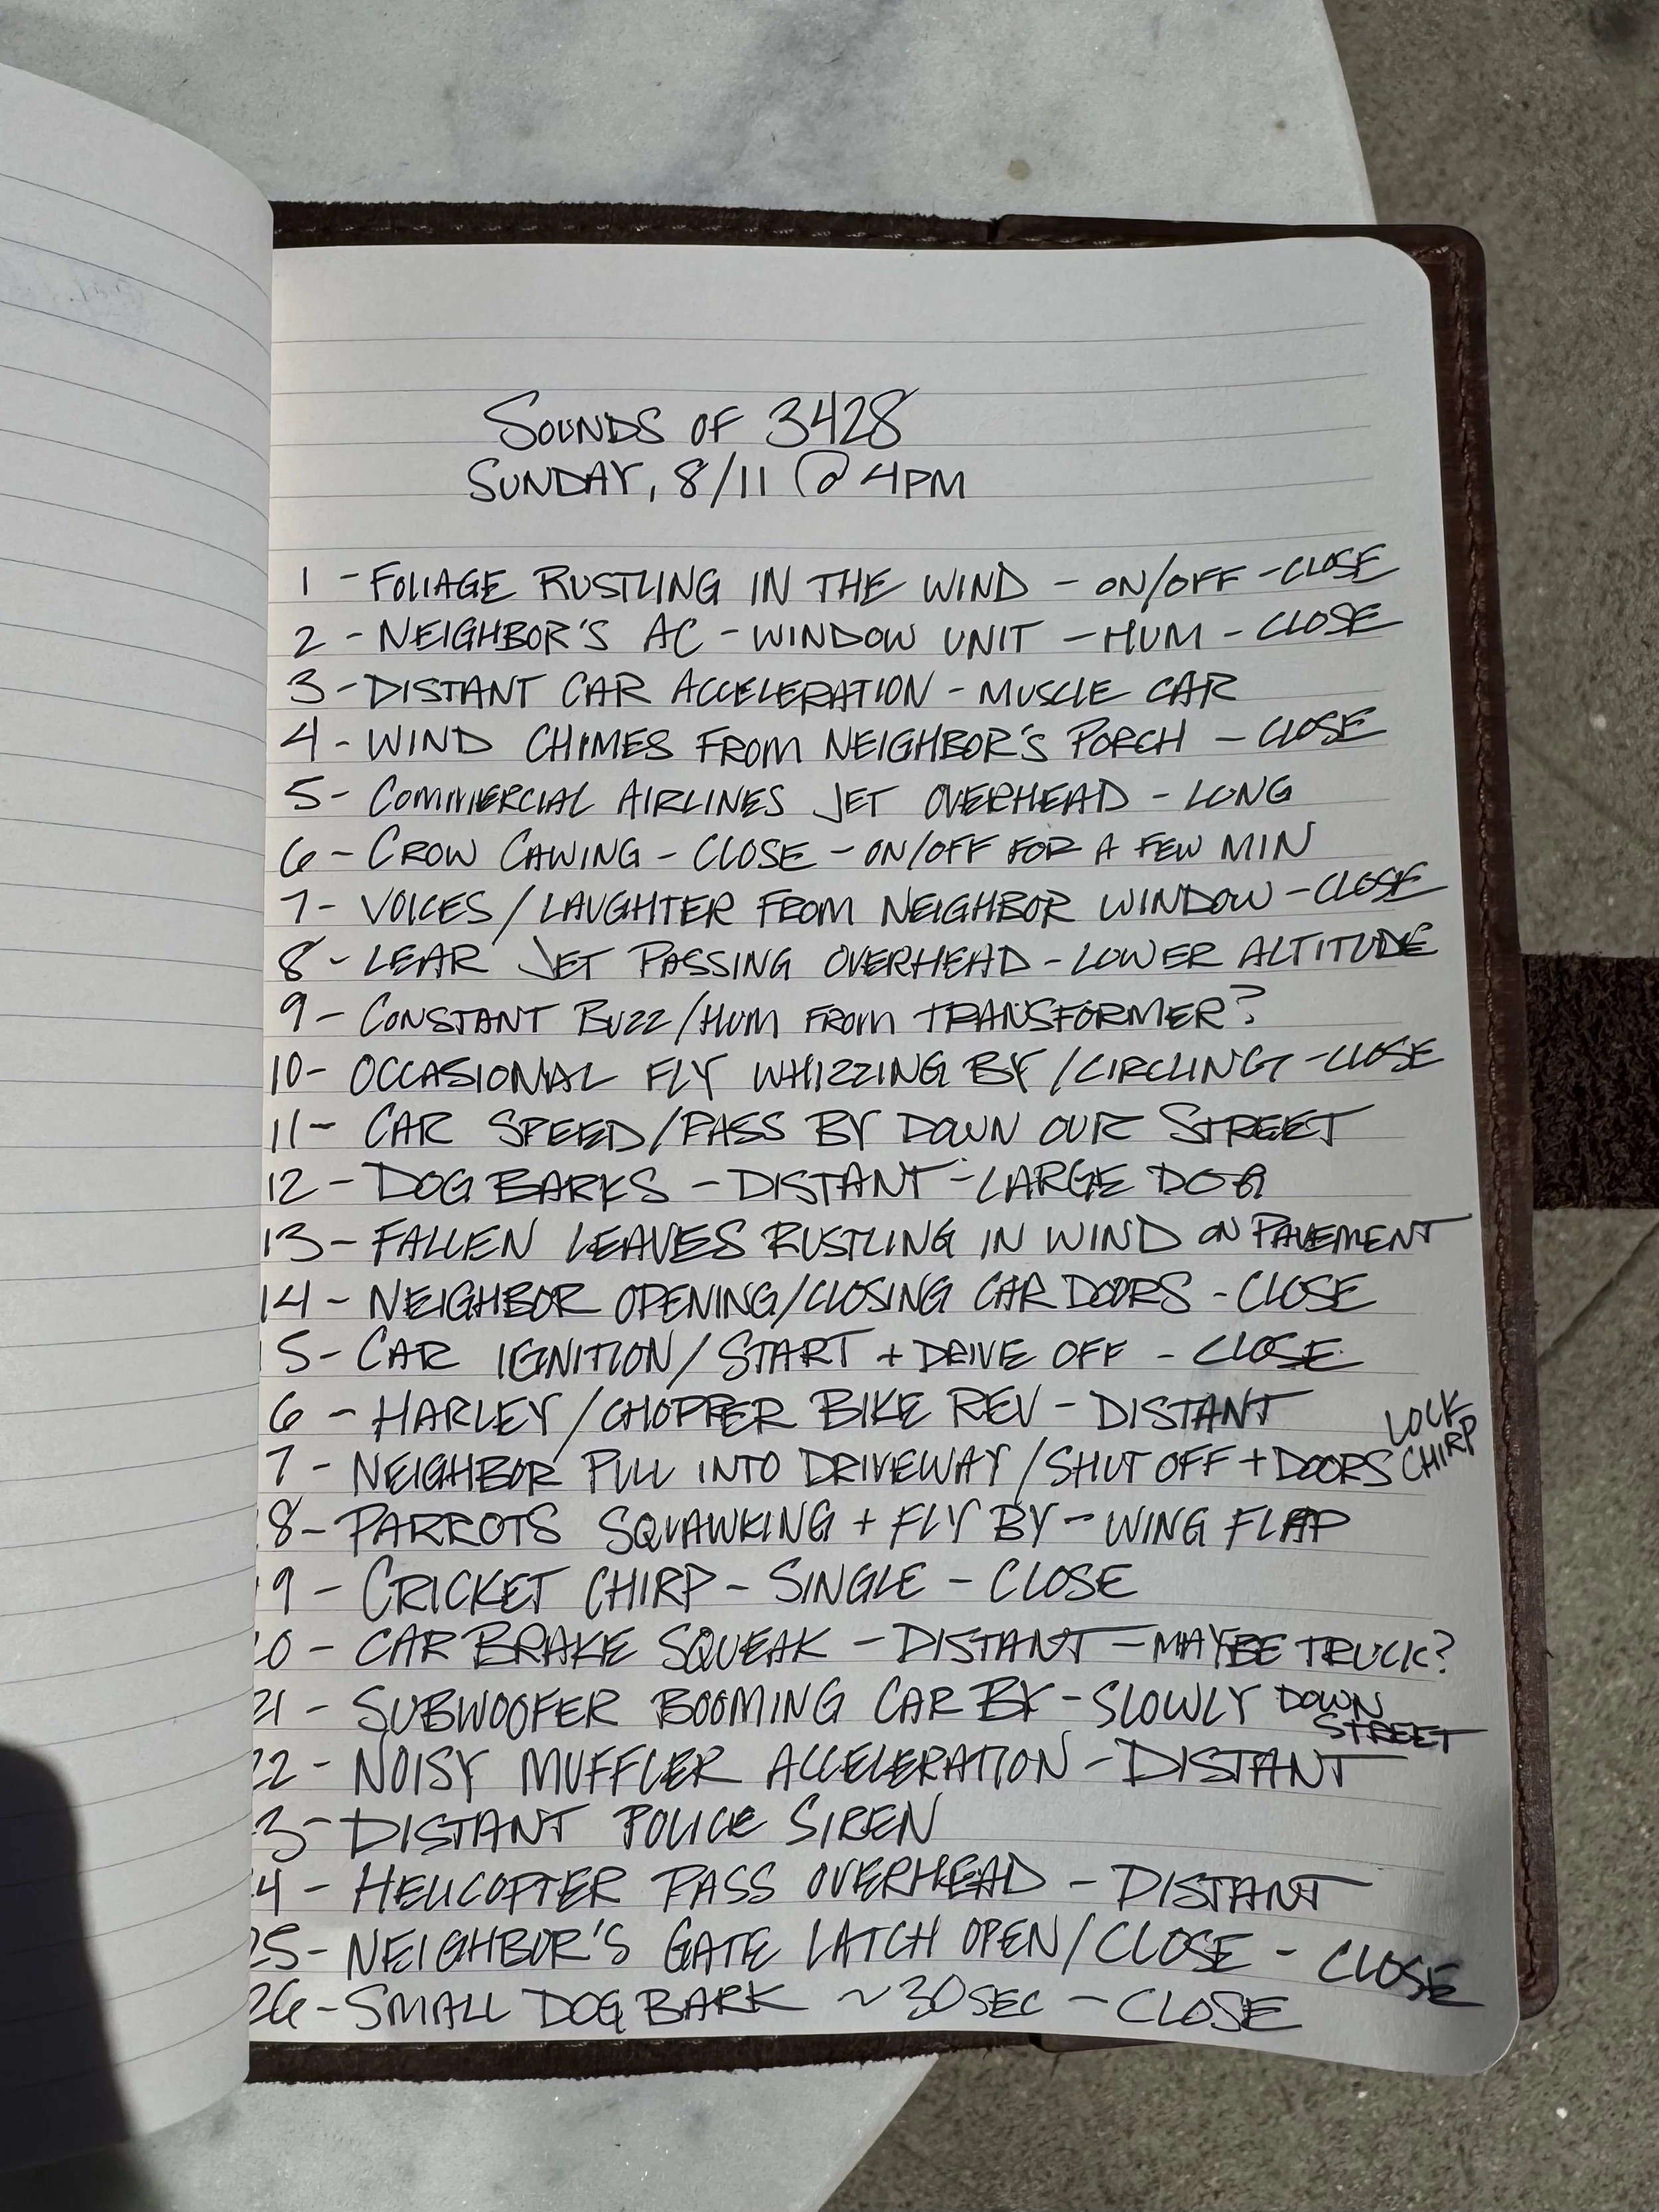 SOUNDS OF 3428
SUNDAY, 8/11 @ 4PM
1 - FOLIAGE RUSTLING IN THE WIND - ON/OFF - CLOSE
2 - NEIGHBOR'S AC - WINDOW UNIT - HUM - CLOSE
3 - DISTANT CAR ACCELERATION - MUSCLE CAR
4 - WIND CHIMES FROM NEIGHBOR'S PORCH - CLOSE
5 - COMMERCIAL AIRLINES JET OVERHEAD - LONG
6 - CROW CAWING - CLOSE - ON/OFF FOR A FEW MIN
7 - VOICES/LAUGHTER FROM NEIGHBOR WINDOW - CLOSE
8 - LEAR JET PASSING OVERHEAD - LOWER ALTITUDE
9 - CONSTANT BUZZ/HUM FROM TRANSFORMER?
10 - OCCASIONAL FLY WHIZZING BY/CIRCLING - CLOSE
11 - CAR SPEED/PASS BY DOWN OUR STREET
12 - DOG BARKS - DISTANT - LARGE DOG
13 - FALLEN LEAVES RUSTLING IN WIND ON PAVEMENT
14 - NEIGHBOR OPENING/CLOSING CAR DOORS - CLOSE
15 - CAR IGNITION/START + DRIVE OFF - CLOSE
6 - HARLEY/CHOPPER BIKE REV - DISTANT
7 - NEIGHBOR PULL INTO DRIVEWAY/SHUT OFF + DOORS LOCK CHIRP
18 - PARROTS SQUAWKING + FLY BY - WING FLAP
19 - CRICKET CHIRP - SINGLE - CLOSE
20 - CAR BRAKE SQUEAK - DISTANT - MAYBE TRUCK?
21 - SUBWOOFER BOOMING CAR BY - SLOWLY DOWN STREET
22 - NOISY MUFFLER ACCELERATION - DISTANT
23 - DISTANT POLICE SIREN
24 - HELICOPTER PASS OVERHEAD - DISTANT
25 - NEIGHBOR'S GATE LATCH OPEN/CLOSE - CLOSE
26 - SMALL DOG BARK ~30SEC - CLOSE